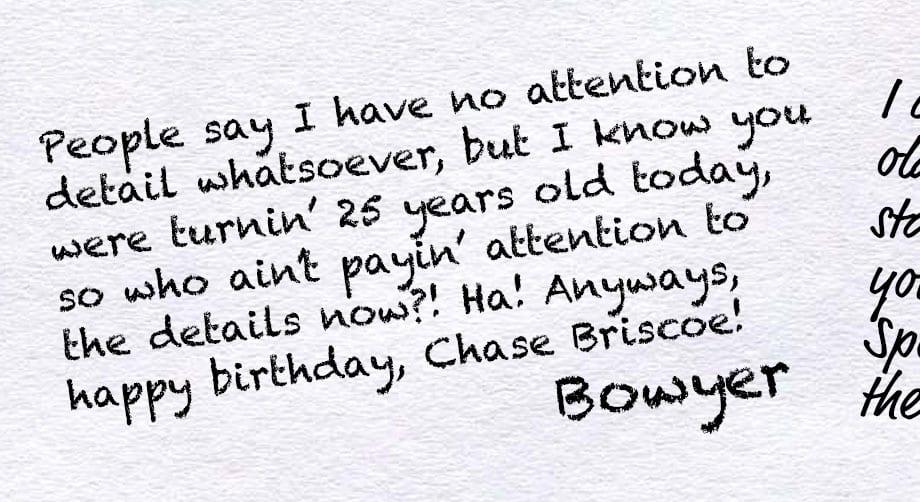 People say I have no attention to
detail whatsoever, but I know you
were turnin' 25 years old today,
so who ain't payin' attention to
the details now?! Ha! Anyways,
happy birthday, Chase Briscoe!
Bowyer
I
the